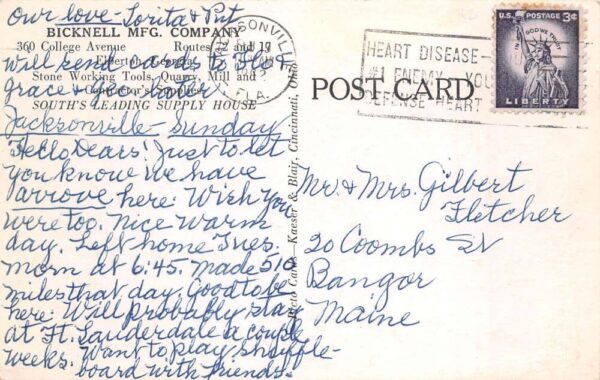 our love - Lorita & Put
BICKNELL MFG. COMPANY
360 College Avenue Routes 17 and
Elberton, Georgia
will send cards to Flo &
Grace & Gus - later
Stone Working Tools, Quarry, Mill and
Contractor's Supplies
SOUTH'S LEADING SUPPLY HOUSE
Jacksonville - Sunday
Hello Dears! Just to let
you know we have
arrove here. Wish you
were too. Nice warm
day. Left home Tues.
morn at 6:45. Made 510
miles that day. Good to be
here. Will probably stay
at Ft. Lauderdale a couple
weeks. Want to play shuffle-
board with friends.
Cards - Kaeser & Blair, Cincinnati, Ohio
JACKSONVILLE
FLA.
HEART DISEASE -
#1 ENEMY YOU
DEFENSE HEART
U.S. POSTAGE 3¢
IN GOD WE TRUST
LIBERTY
POST CARD
Mr. & Mrs. Gilbert
Fletcher
20 Coombs St
Bangor
Maine